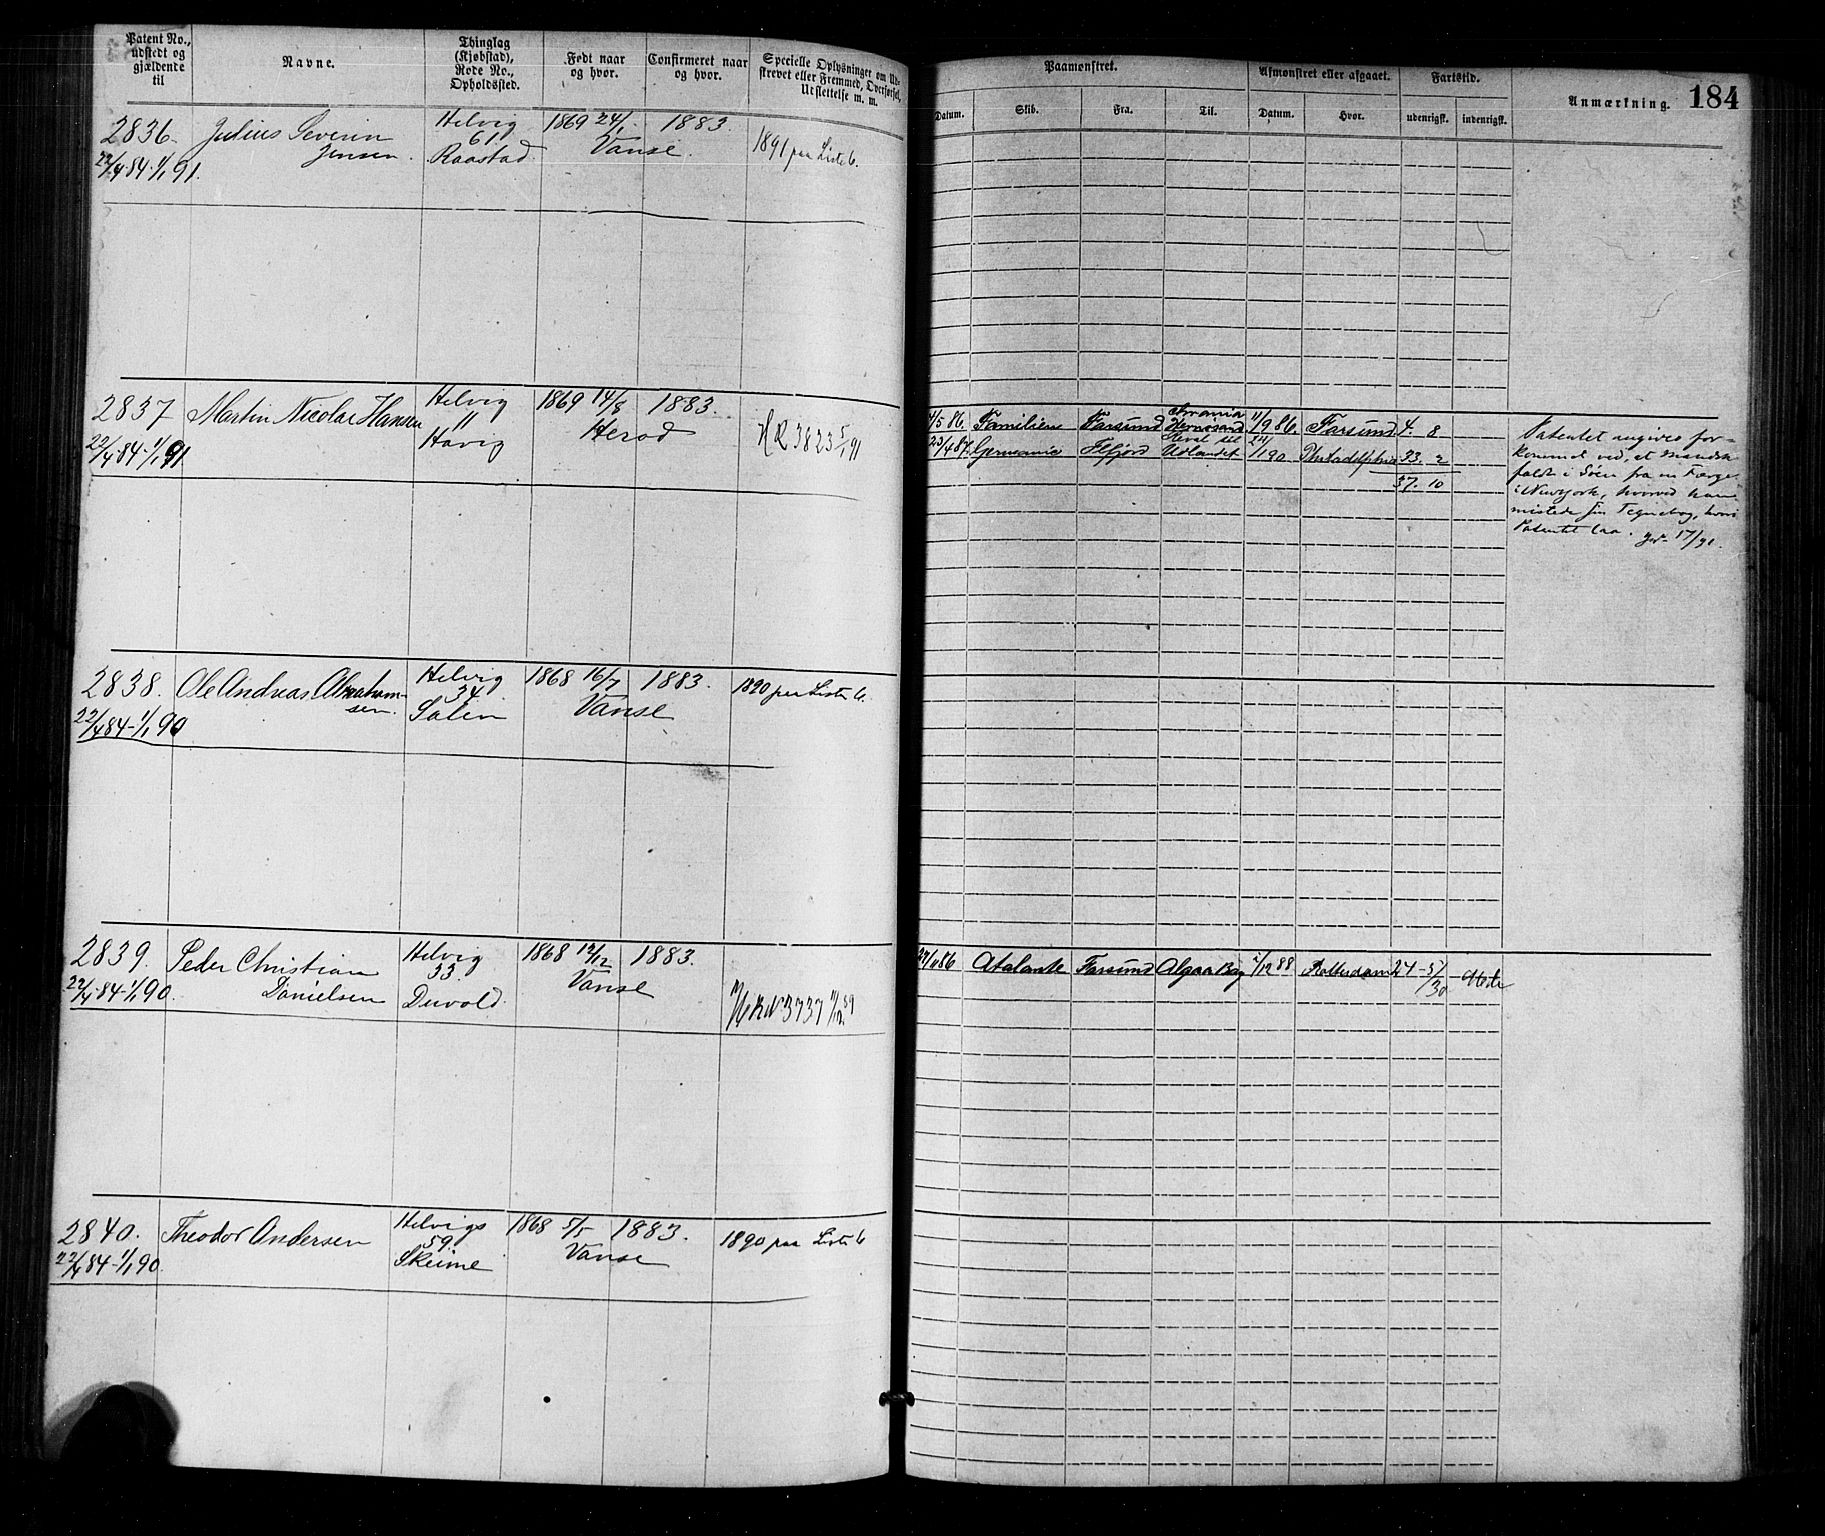 Patent No.,
udstedt og
gjældende
til
Navne.
Thinglag
(Kjøbstad),
Rode No.,
Opholdssted.
Født naar
og hvor.
Confirmeret naar
og hvor.
Specielle Oplysninger om Ud-
skrevet eller Fremmed, Overførsel,
Udslettelse m. m.
2836.
22/4 84-1/1 91.
Julius Severin
Jensen.
Helvig
61.
Raastad
1869 24/1.
Vanse.
1883.
1891 paa Liste C.
2837
22/4 84-1/1 91
Martin Nicolai Hansen
Helvig
"
Havig
1869 14/8
Herod
1883.
HR 3823 5/1 91
2838.
22/4 84-1/1 90
Ole Andreas Abraham-
sen.
Helvig
34
1868 16/7
Vanse
1883.
1890 paa Liste C.
2839.
22/4 84-1/1 90.
Peder Christian
Danielsen
Helvig
33
1868 12/12
Vanse
1883.
3737
2840.
22/4 84-1/1 90.
Theodor Andersen
Helvigs
59
Skeime
1868 5/5
Vanse
1883.
1890 paa Liste C
Paamønstret.
Afmønstret eller afgaaet.
Fartstid.
Anmærkning.
184
Datum.
Skib.
Fra.
Til.
Datum.
Hvor.
udenrigsk.
indenrigsk.
4/5 86. Familien Farsund Hernøsand 11/9 86. Farsund 4. 8
23/4 87. Germania Flfjord Udlandet 24/11 90 Philadelphia 33. 2
37. 10
Patentet angives for-
kommet ved, at Manden
faldt i Søen fra en Færge
i Newyork, hvorved han
mistede sin Tegnebog, hvori
Patentet laa. 17/1 91.
27/4 86 Atalante Farsund Algoa Bay 2/12 88 Rotterdam 24 - 5/30